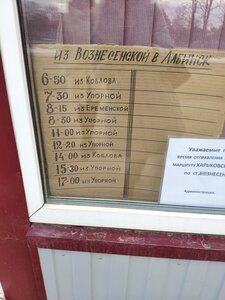 ИЗ ВОЗНЕСЕНСКОЙ В ЛАБИНСК
6-50 ИЗ КОБЛОВА
7-30 ИЗ УПОРНОЙ
8-15 ИЗ ЕРЕМЕНСКОЙ
8-30 ИЗ УПОРНОЙ
11-00 ИЗ УПОРНОЙ
12-20 ИЗ УПОРНОЙ
14 00 ИЗ КОБЛОВА
15-30 ИЗ УПОРНОЙ
17-00 УПОРНОЙ
Уважаемые
ВРЕМЯ ОТПРАВЛЕНИЯ
МАРШРУТУ ХАРЬКОВС
по ст.ВОЗНЕСЕН
Администрация